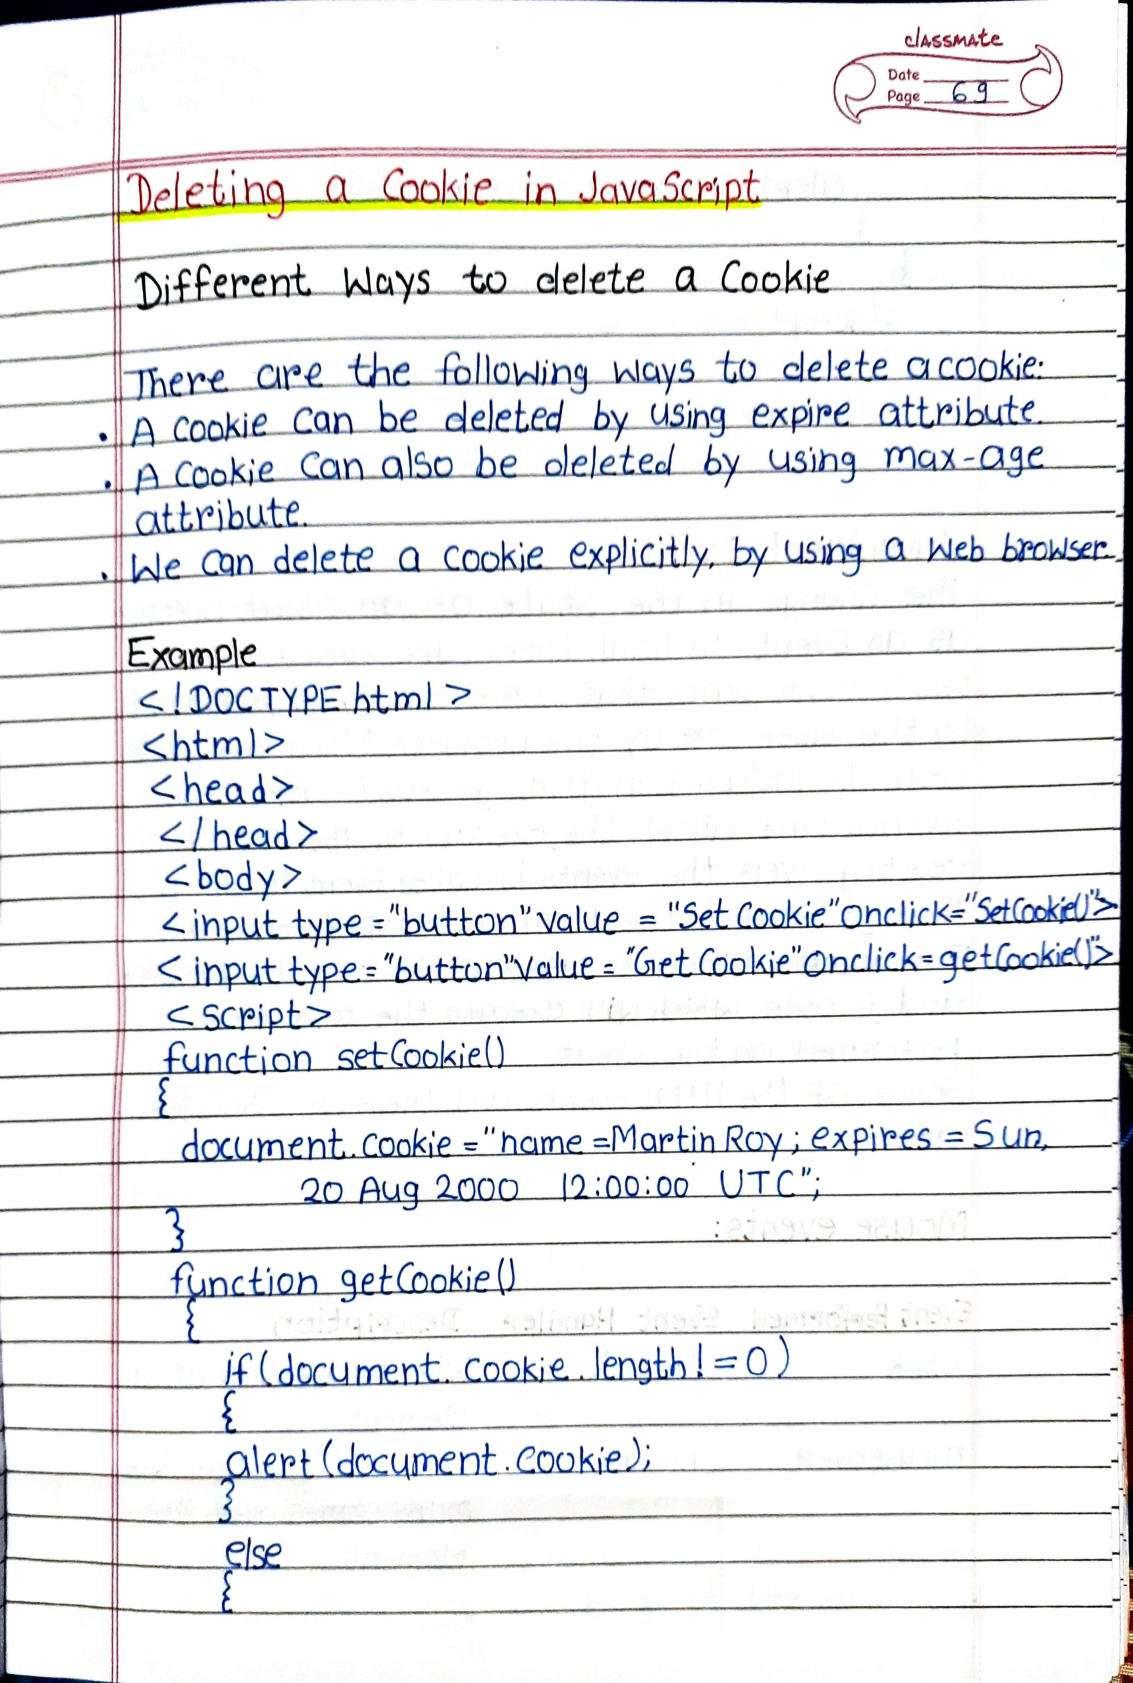 classmate
Date
Page 69
Deleting a Cookie in JavaScript
Different Ways to delete a Cookie
There are the following ways to delete a cookie:
• A cookie can be deleted by using expire attribute.
• A cookie can also be deleted by using max-age
attribute.
• We can delete a cookie explicitly, by using a web browser
Example
<!DOCTYPE html>
<html>
<head>
</head>
<body>
<input type="button" value = "Set Cookie" onclick="SetCookie()">
<input type="button" value="Get Cookie" onclick=getCookie()">
<script>
function setCookie()
{
document.cookie="name=Martin Roy; expires=Sun,
20 Aug 2000 12:00:00 UTC";
}
function getCookie()
{
if(document.cookie.length!=0)
{
alert(document.cookie);
}
else
{